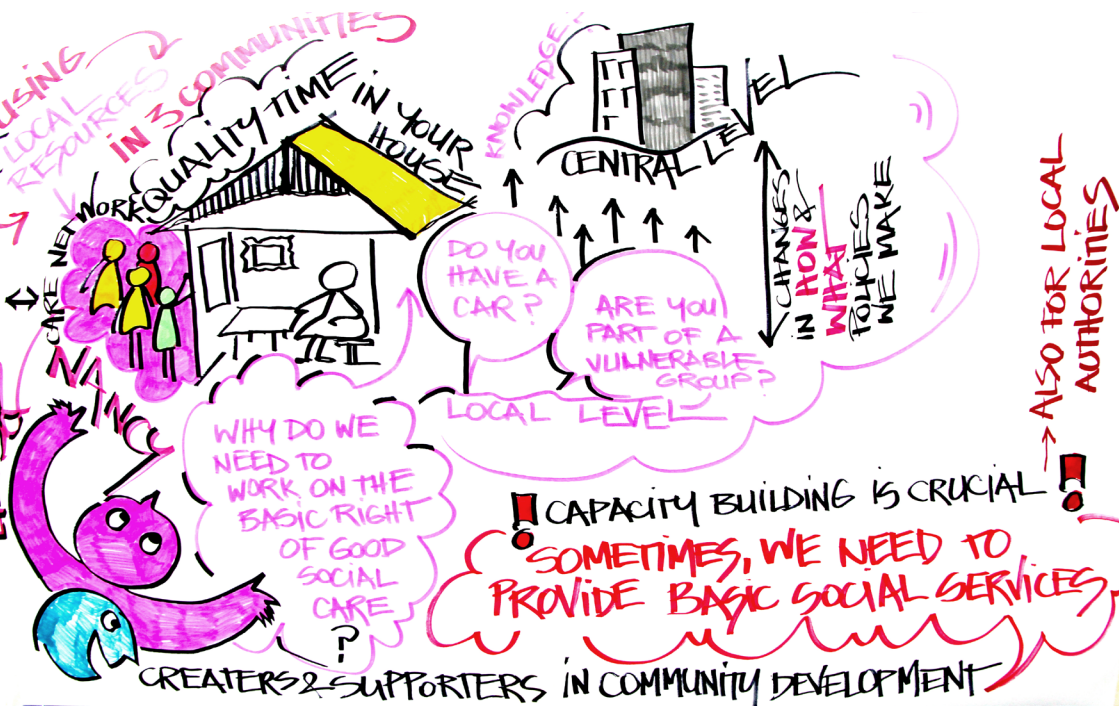 USING
LOCAL
RESOURCES
IN 3 COMMUNITIES
CARE NETWORK
QUALITY TIME IN YOUR
HOUSE
KNOWLEDGE
CENTRAL LEVEL
CHANGES
IN HOW &
WHAT
POLICIES
WE MAKE
DO YOU
HAVE A
CAR?
ARE YOU
PART OF A
VULNERABLE
GROUP?
LOCAL LEVEL
NANCY
WHY DO WE
NEED TO
WORK ON THE
BASIC RIGHT
OF GOOD
SOCIAL
CARE
?
→ ALSO FOR LOCAL
AUTHORITIES
! CAPACITY BUILDING IS CRUCIAL !
SOMETIMES, WE NEED TO
PROVIDE BASIC SOCIAL SERVICES
CREATERS & SUPPORTERS IN COMMUNITY DEVELOPMENT